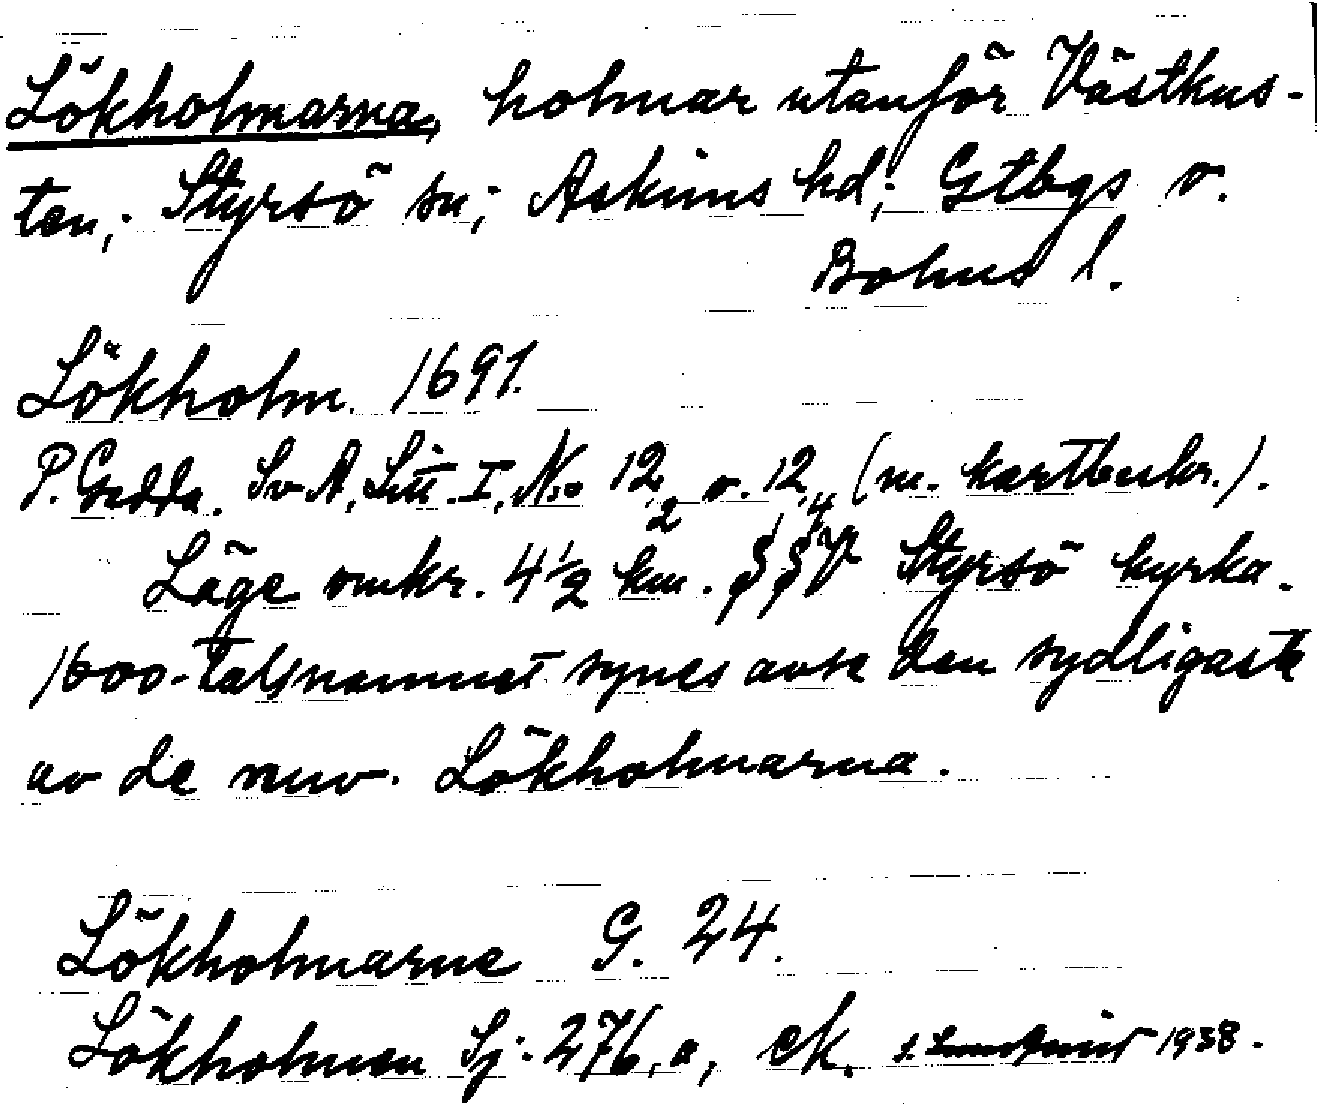 Lökholmarna, holmar utanför Västkus-
ten; Styrsö sn; Askims hd; Gtbgs o.
Bohus l.
Lökholm. 1691.
P. Gedda. Sv A, Litt. I, No 12,2 o. 12,4 (m. kartbeskr.).
Läge omkr. 4½ km. V Styrsö kyrka.
1600-talsnamnet synes avse den sydligaste
av de nuv. Lökholmarna.
Lökholmarne G. 24.
Lökholmen Sj. 276, a, ek. 1938.